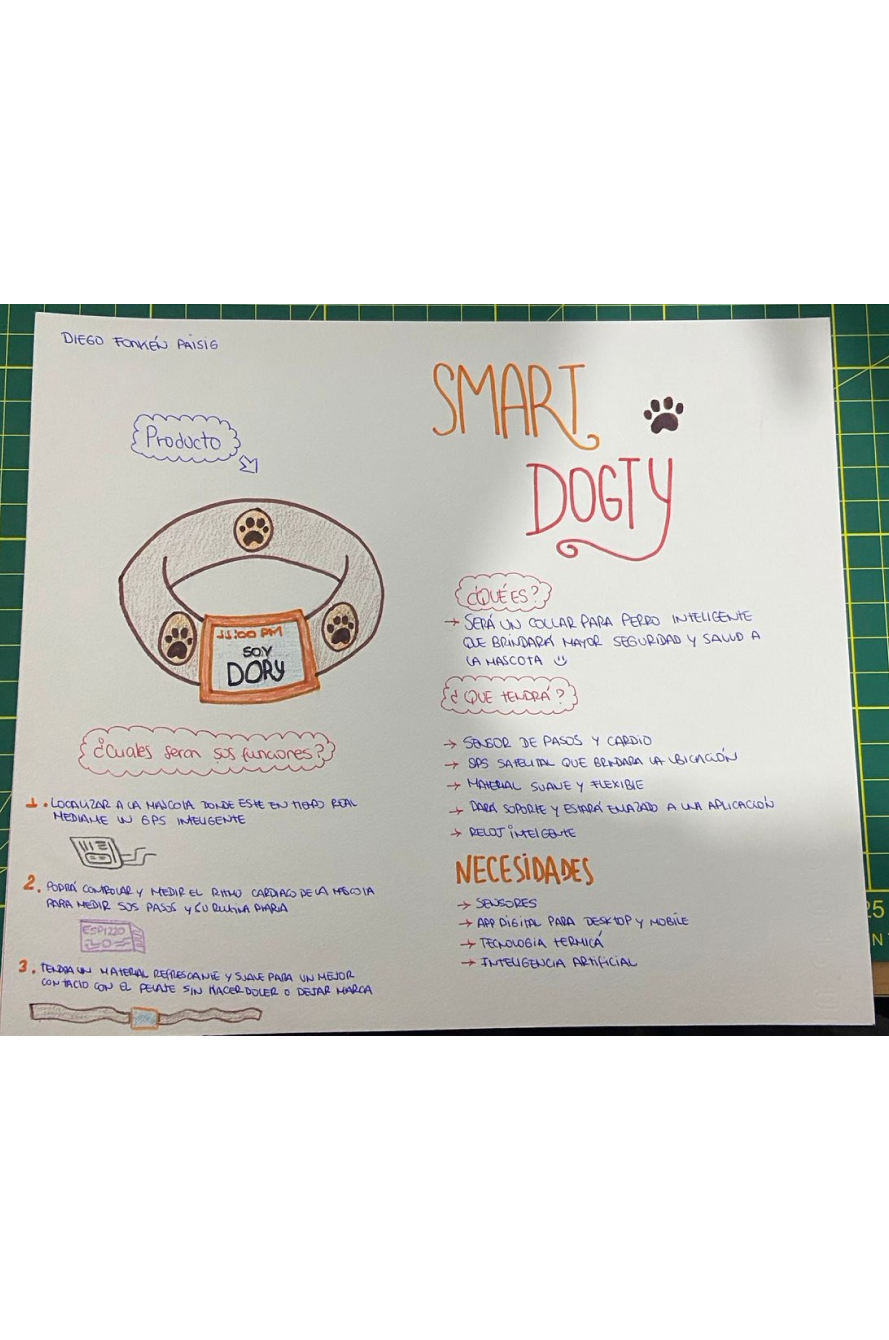 DIEGO FONKÉN PAISIG
Producto
11:00 PM
SOY
DORY
¿Cuales seran sus funciones?
1. LOCALIZAR A LA MASCOTA DONDE ESTE EN TIEMPO REAL
MEDIANTE UN GPS INTELIGENTE
2. PODRÁ CONTROLAR Y MEDIR EL RITMO CARDIACO DE LA MASCOTA
PARA MEDIR SUS PASOS Y SU RUTINA DIARIA
ESP1220
3. TENDRA UN MATERIAL REFRESCANTE Y SUAVE PARA UN MEJOR
CONTACTO CON EL PELAJE SIN HACER DOLER O DEJAR MARCA
SMART
DOGTY
¿QUÉ ES?
→ SERÁ UN COLLAR PARA PERRO INTELIGENTE
QUE BRINDARÁ MAYOR SEGURIDAD Y SALUD A
LA MASCOTA
¿QUE TENDRÁ?
→ SENSOR DE PASOS Y CARDIO
→ GPS SATELITAL QUE BRINDARA LA UBICACIÓN
→ MATERIAL SUAVE Y FLEXIBLE
→ DARÁ SOPORTE Y ESTARÁ ENLAZADO A UNA APLICACIÓN
→ RELOJ INTELIGENTE
NECESIDADES
→ SENSORES
→ APP DIGITAL PARA DESKTOP Y MOBILE
→ TECNOLOGIA TERMICA
→ INTELIGENCIA ARTIFICIAL
25